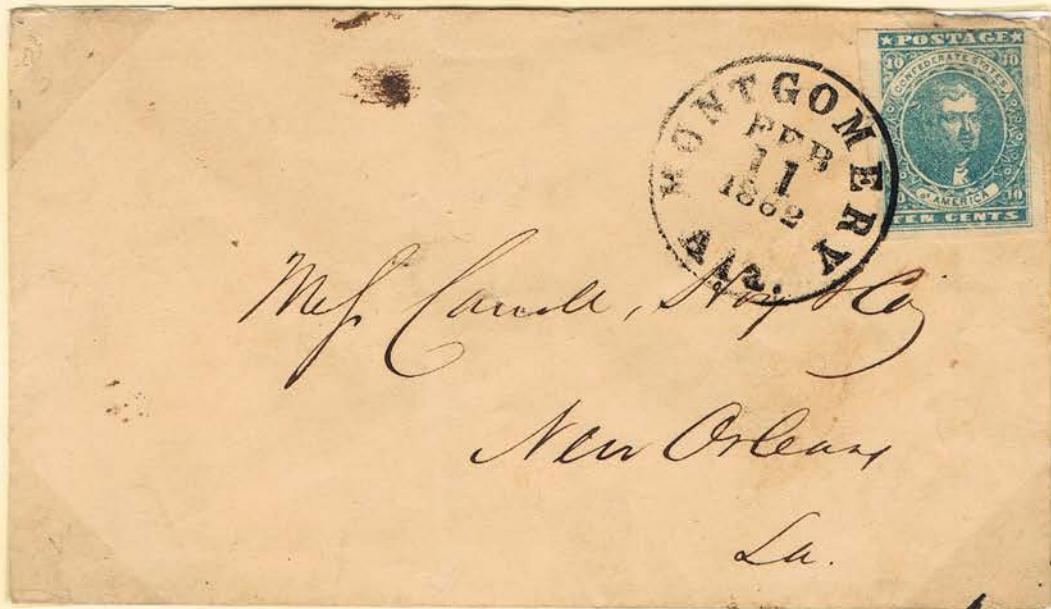 ★POSTAGE★
10 10
CONFEDERATE STATES
OF AMERICA
10
TEN CENTS
MONTGOMERY
FEB
11
1862
Ala.
Mess Carroll, Hoy & Co
New Orleans
La.